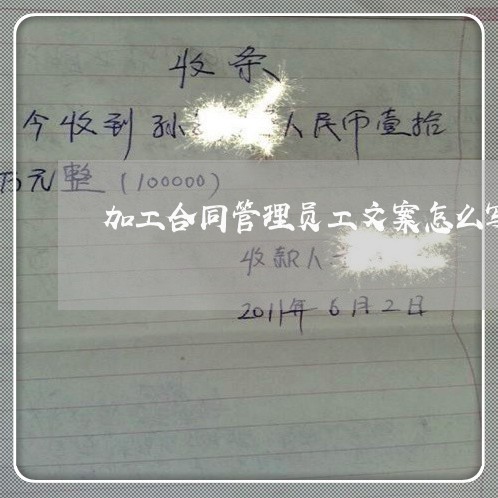 收条
今收到孙 人民币壹拾
万元整(100000)
加工合同管理员工文案怎么写
收款人
2011年6月2日